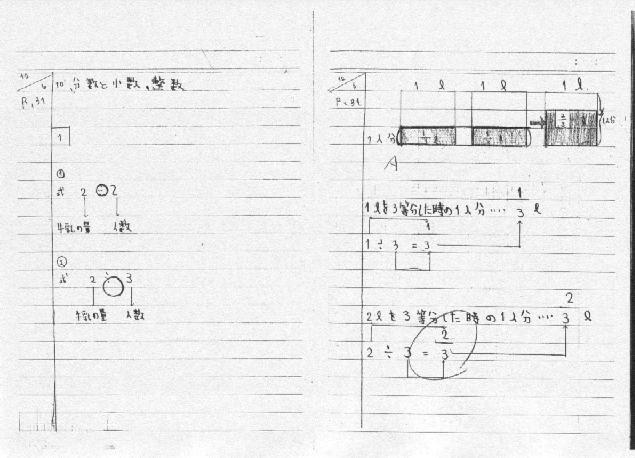 10/6 10、分数と小数、整数
P.31
1
①
式 2÷2
牛乳の量 人数
②
式 2÷3
牛乳の量 人数
10/6
P.31
1 l 1 l 1 l
1人分 1/3 l 1/3 l 2/3 l 1人分
A
1lを3等分した時の1人分…… 1/3 l
1÷3=1/3
2lを3等分した時の1人分…… 2/3 l
2÷3=2/3